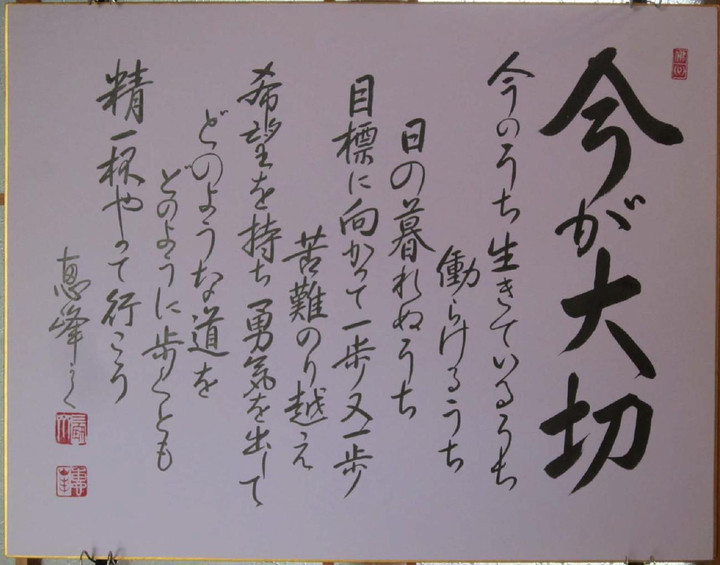 今が大切
今のうち生きているうち
働らけるうち
日の暮れぬうち
目標に向かって一歩又一歩
苦難のり越え
希望を持ち勇気を出して
どのような道を
どのように歩くとも
精一杯やって行こう
恵峰